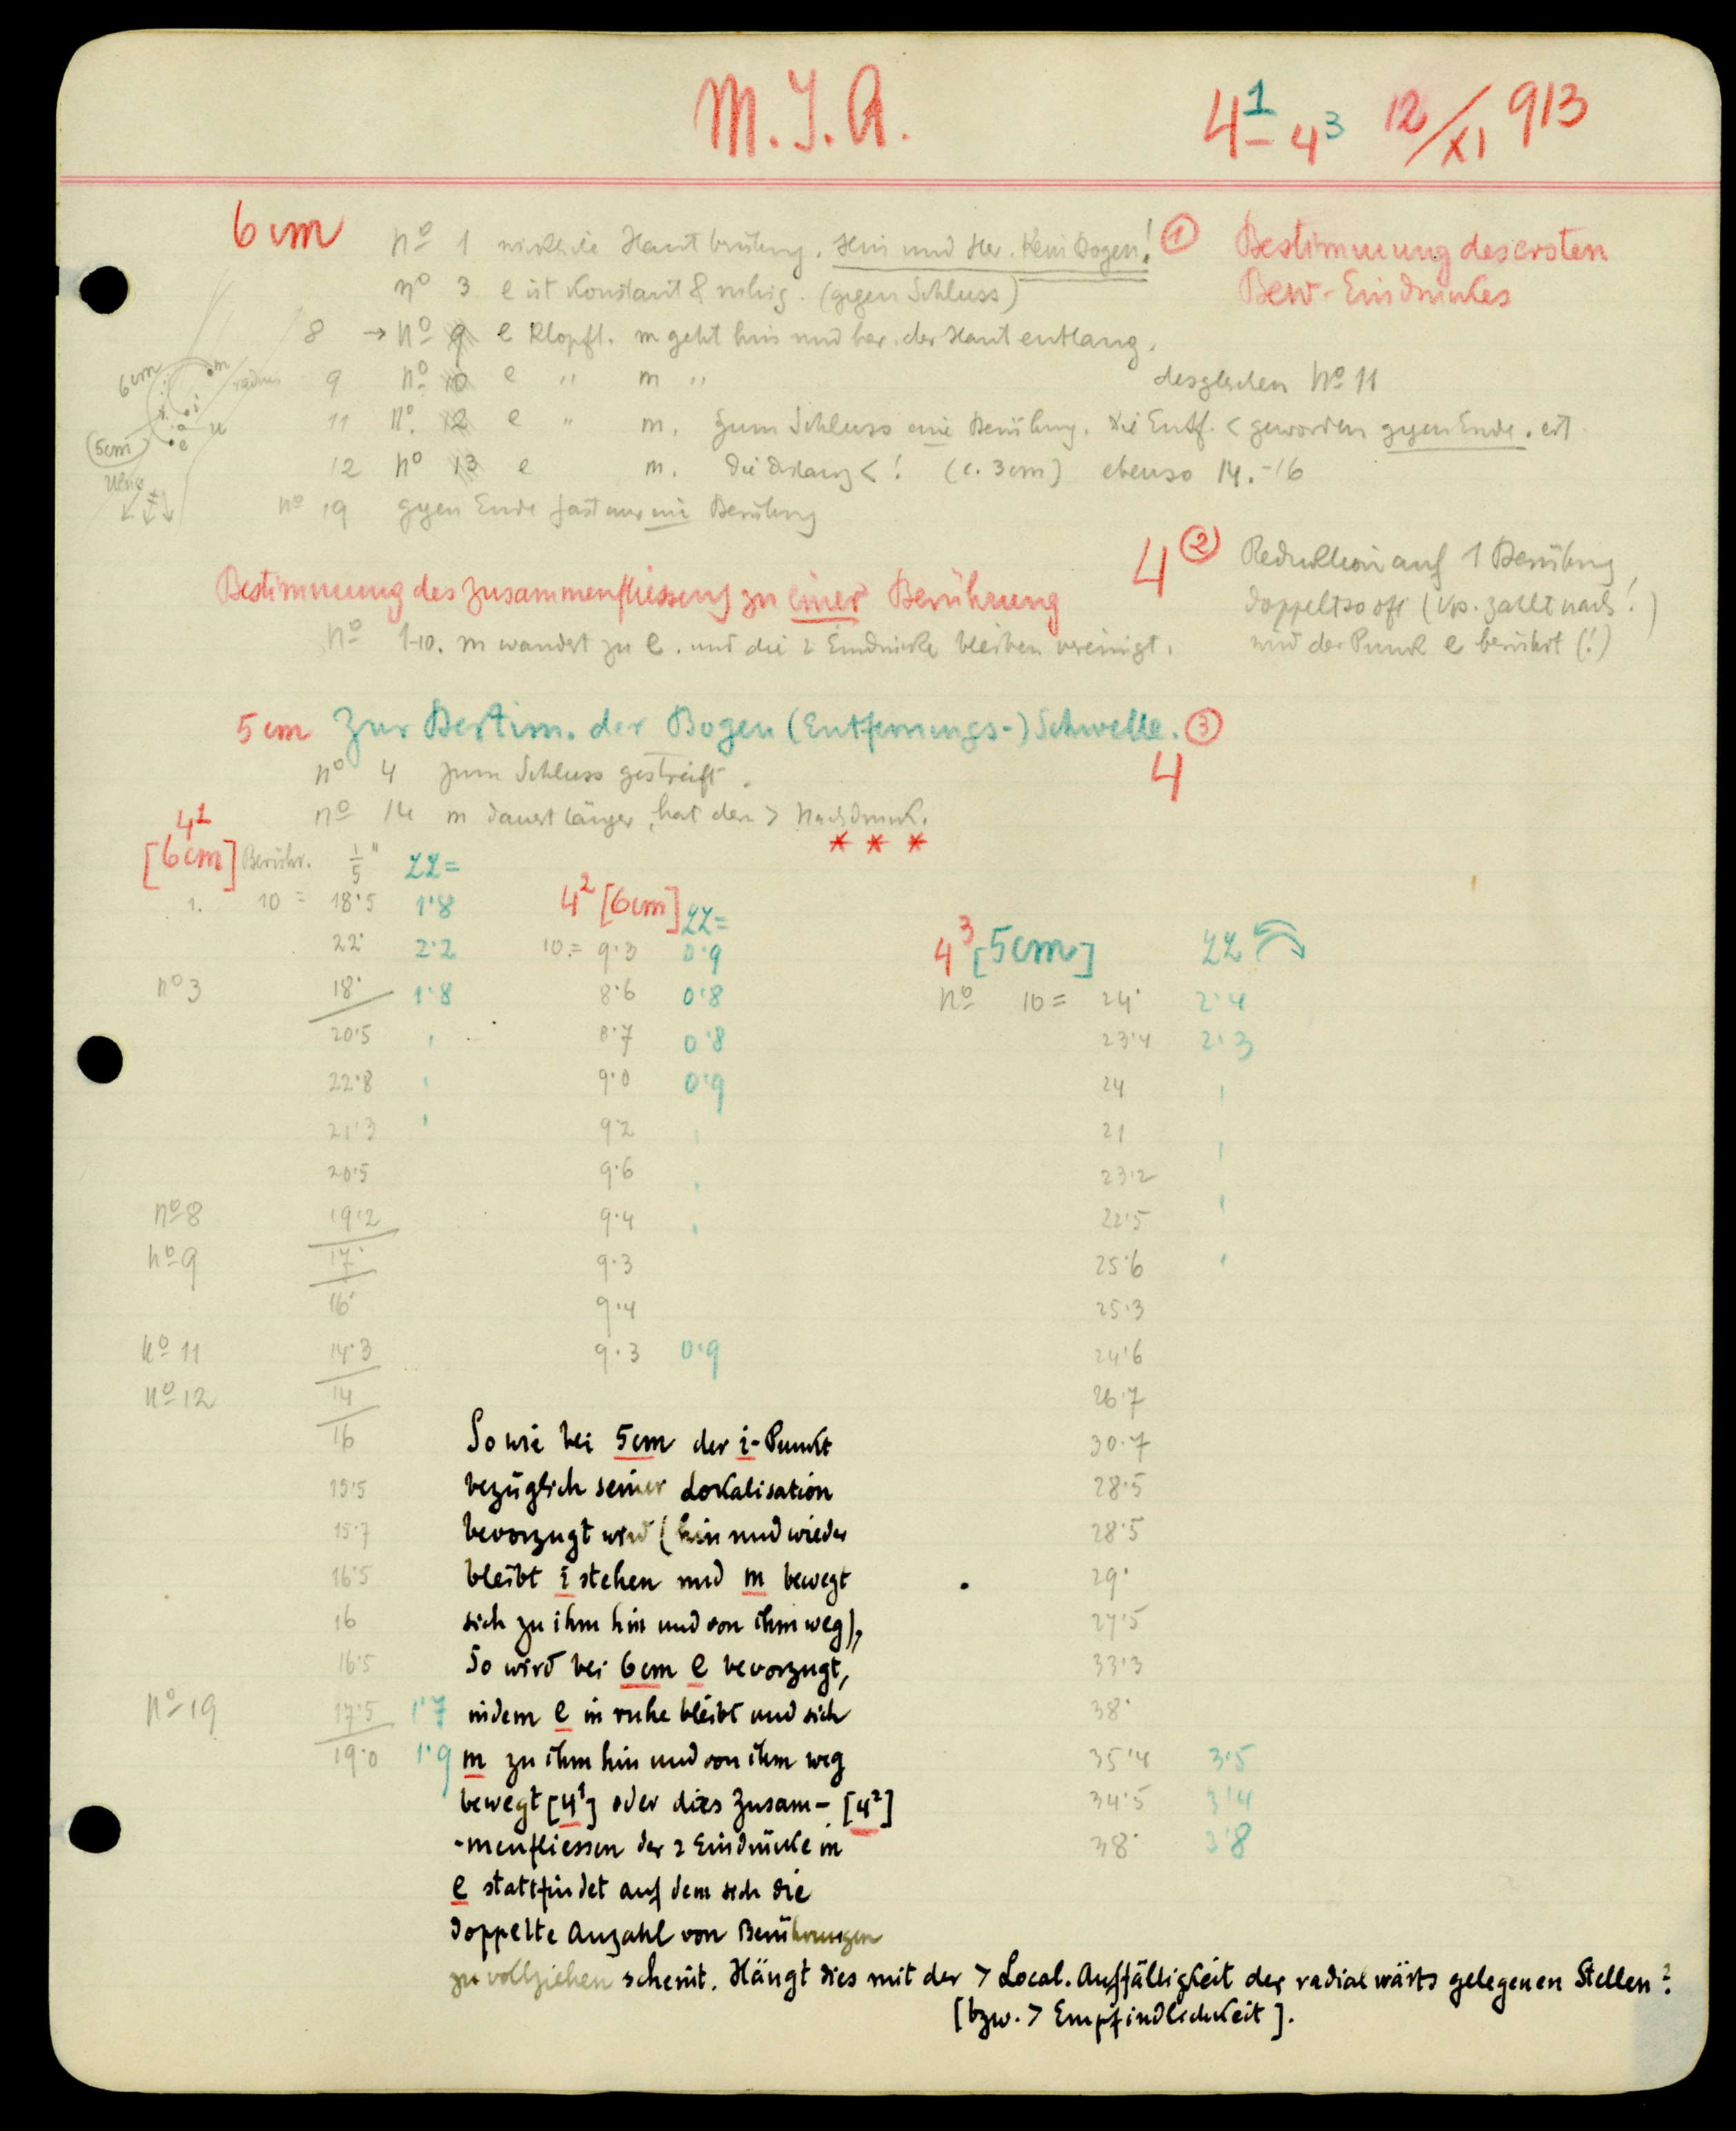 M. J. A.
4¹ – 4³ 12/XI 913
6 cm
nº 1 wirkliche Hautberührg. Hin und Her. Kein Bogen! ①
Bestimmung des ersten
Bew-Eindruckes
nº 3 e ist konstant & ruhig. (gegen Schluss)
8 → nº 9 e klopft. m geht hin und her. der Haut entlang.
9 nº 10 e " m "
desgleichen Nº 11
11 nº 12 e " m. zum Schluss eine Berührung. Die Entf. < geworden gegen Ende.
12 nº 13 e m. die Distanz < ! (c. 3cm) ebenso 14.-16
nº 19 gegen Ende fast nur eine Berührg
6cm
m
radius
i
a
u
e
(5cm)
Ulna
4 ②
Reduktion auf 1 Berührg
doppelt so oft (Vp. zählt nach!)
und der Punkt e berührt (!)
Bestimmung des Zusammenfliessens zu einer Berührung
nº 1-10. m wandert zu e. und die 2 Eindrücke bleiben vereinigt.
5 cm Zur Bestim. der Bogen (Entfernungs-) Schwelle. ③
4
nº 4 zum Schluss gestreift.
nº 14 m dauert länger, hat den > Nachdruck.
* * *
4¹
[6cm] Berühr. 1/5" ZZ=
1. 10 = 18·5 1·8
22· 2·2
nº 3 18· 1·8
20·5 '
22·8 '
21·3 '
20·5
nº 8 19·2
nº 9 17·
16·
nº 11 14·3
nº 12 14
16
15·5
15·7
16·5
16
16·5
nº 19 17·5 1·7
19·0 1·9
4² [6cm] ZZ=
10.= 9·3 0·9
8·6 0·8
8·7 0·8
9·0 0·9
9·2 '
9·6 '
9·4 '
9·3
9·4
9·3 0·9
4³ [5cm] ZZ
nº 10 = 24· 2·4
23·4 2·3
24 '
21 '
23·2 '
22·5
25·6 '
25·3
24·6
26·7
30·7
28·5
28·5
29·
27·5
33·3
38·
35·4 3·5
34·5 3·4
38· 3·8
So wie bei 5cm der i-Punkt
bezüglich seiner Lokalisation
bevorzugt wird (hin und wieder
bleibt i stehen und m bewegt
sich zu ihm hin und von ihm weg),
So wird bei 6cm e bevorzugt,
indem e in ruhe bleibt und sich
m zu ihm hin und von ihm weg
bewegt [4¹] oder dies Zusam- [4²]
-menfliessen der 2 Eindrücke in
e stattfindet auf dem sich die
doppelte Anzahl von Berührungen
zu vollziehen scheint. Hängt dies mit der > Local. Auffälligkeit der radialwärts gelegenen Stellen?
[bzw. > Empfindlichkeit].